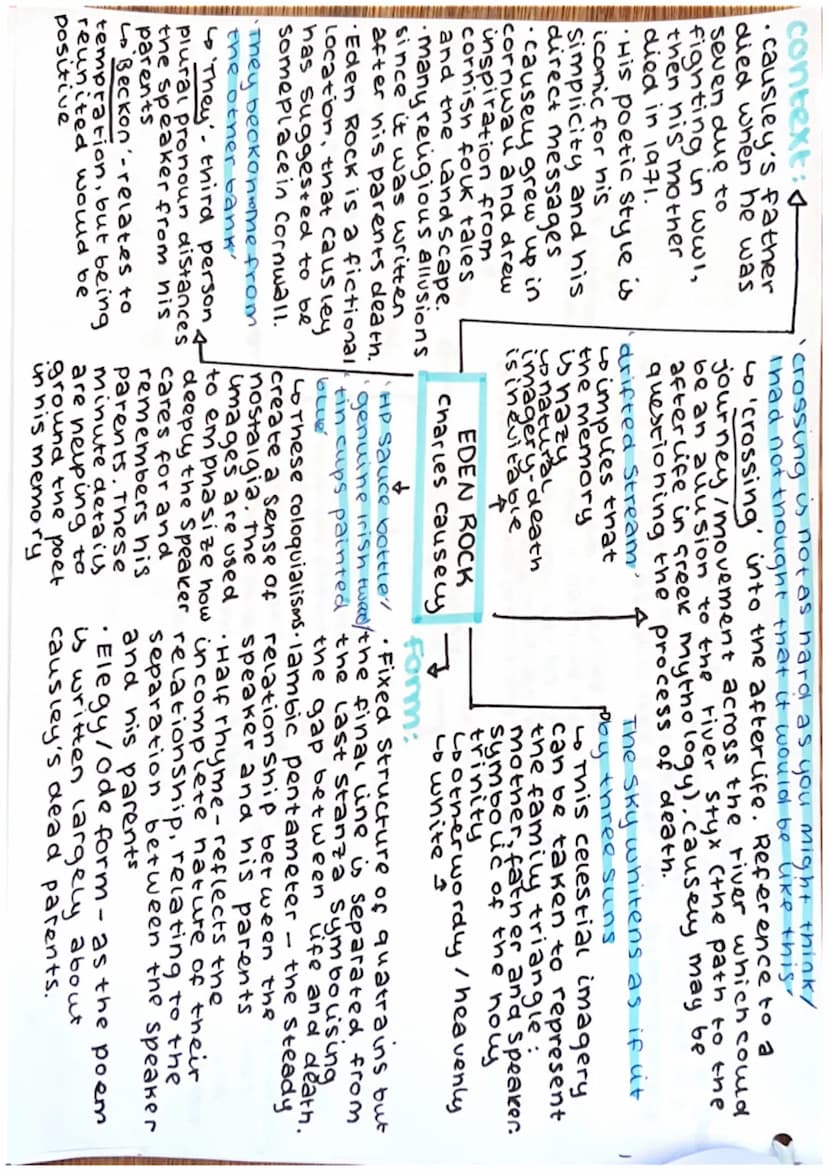 context:
· causley's father
died when he was
seven due to
fighting in WW1,
then his mother
died in 1971.
· His poetic style is
iconic for his
simplicity and his
direct messages
· causely grew up in
cornwall and drew
inspiration from
cornish folk tales
and the landscape.
· many religious allusions
since it was written
after his parents death.
· Eden Rock is a fictional
location, that causley
has suggested to be
someplace in Cornwall.
'They beckon me from
the other bank'
↳ 'They' - third person
plural pronoun distances
the speaker from his
parents
↳ 'Beckon' - relates to
tempration, but being
reunited would be
positive
'crossing is not as hard as you might think/
I had not thought that it would be like this'
↳ 'crossing' into the afterlife. Reference to a
journey/movement across the river which could
be an allusion to the river Styx (the path to the
afterlife in Greek mythology). Causely may be
questioning the process of death.
'drifted stream'
↳ implies that
the memory
is hazy
↳ natural
imagery - death
is inevitable
EDEN ROCK
Charles causely
'HP sauce bottle'/
'genuine irish tweed'/
'tin cups painted
blue'
↳ These coloquialisms
create a sense of
nostalgia. The
images are used
to emphasize how
deeply the speaker
cares for and
remembers his
parents. These
minute details
are helping to
ground the poet
in his memory
'The sky whitens as if lit
by three suns'
↳ This celestial imagery
can be taken to represent
the family triangle:
mother, father and speaker.
symbolic of the holy
trinity
↳ otherwordly/heavenly
↳ white ↑
form:
· Fixed structure of quatrains but
the final line is separated from
the last stanza symbolising
the gap between life and death.
· Iambic pentameter - the steady
relationship between the
speaker and his parents
· Half rhyme - reflects the
incomplete nature of their
relationship, relating to the
separation between the speaker
and his parents
· Elegy/ode form - as the poem
is written largely about
causley's dead parents.